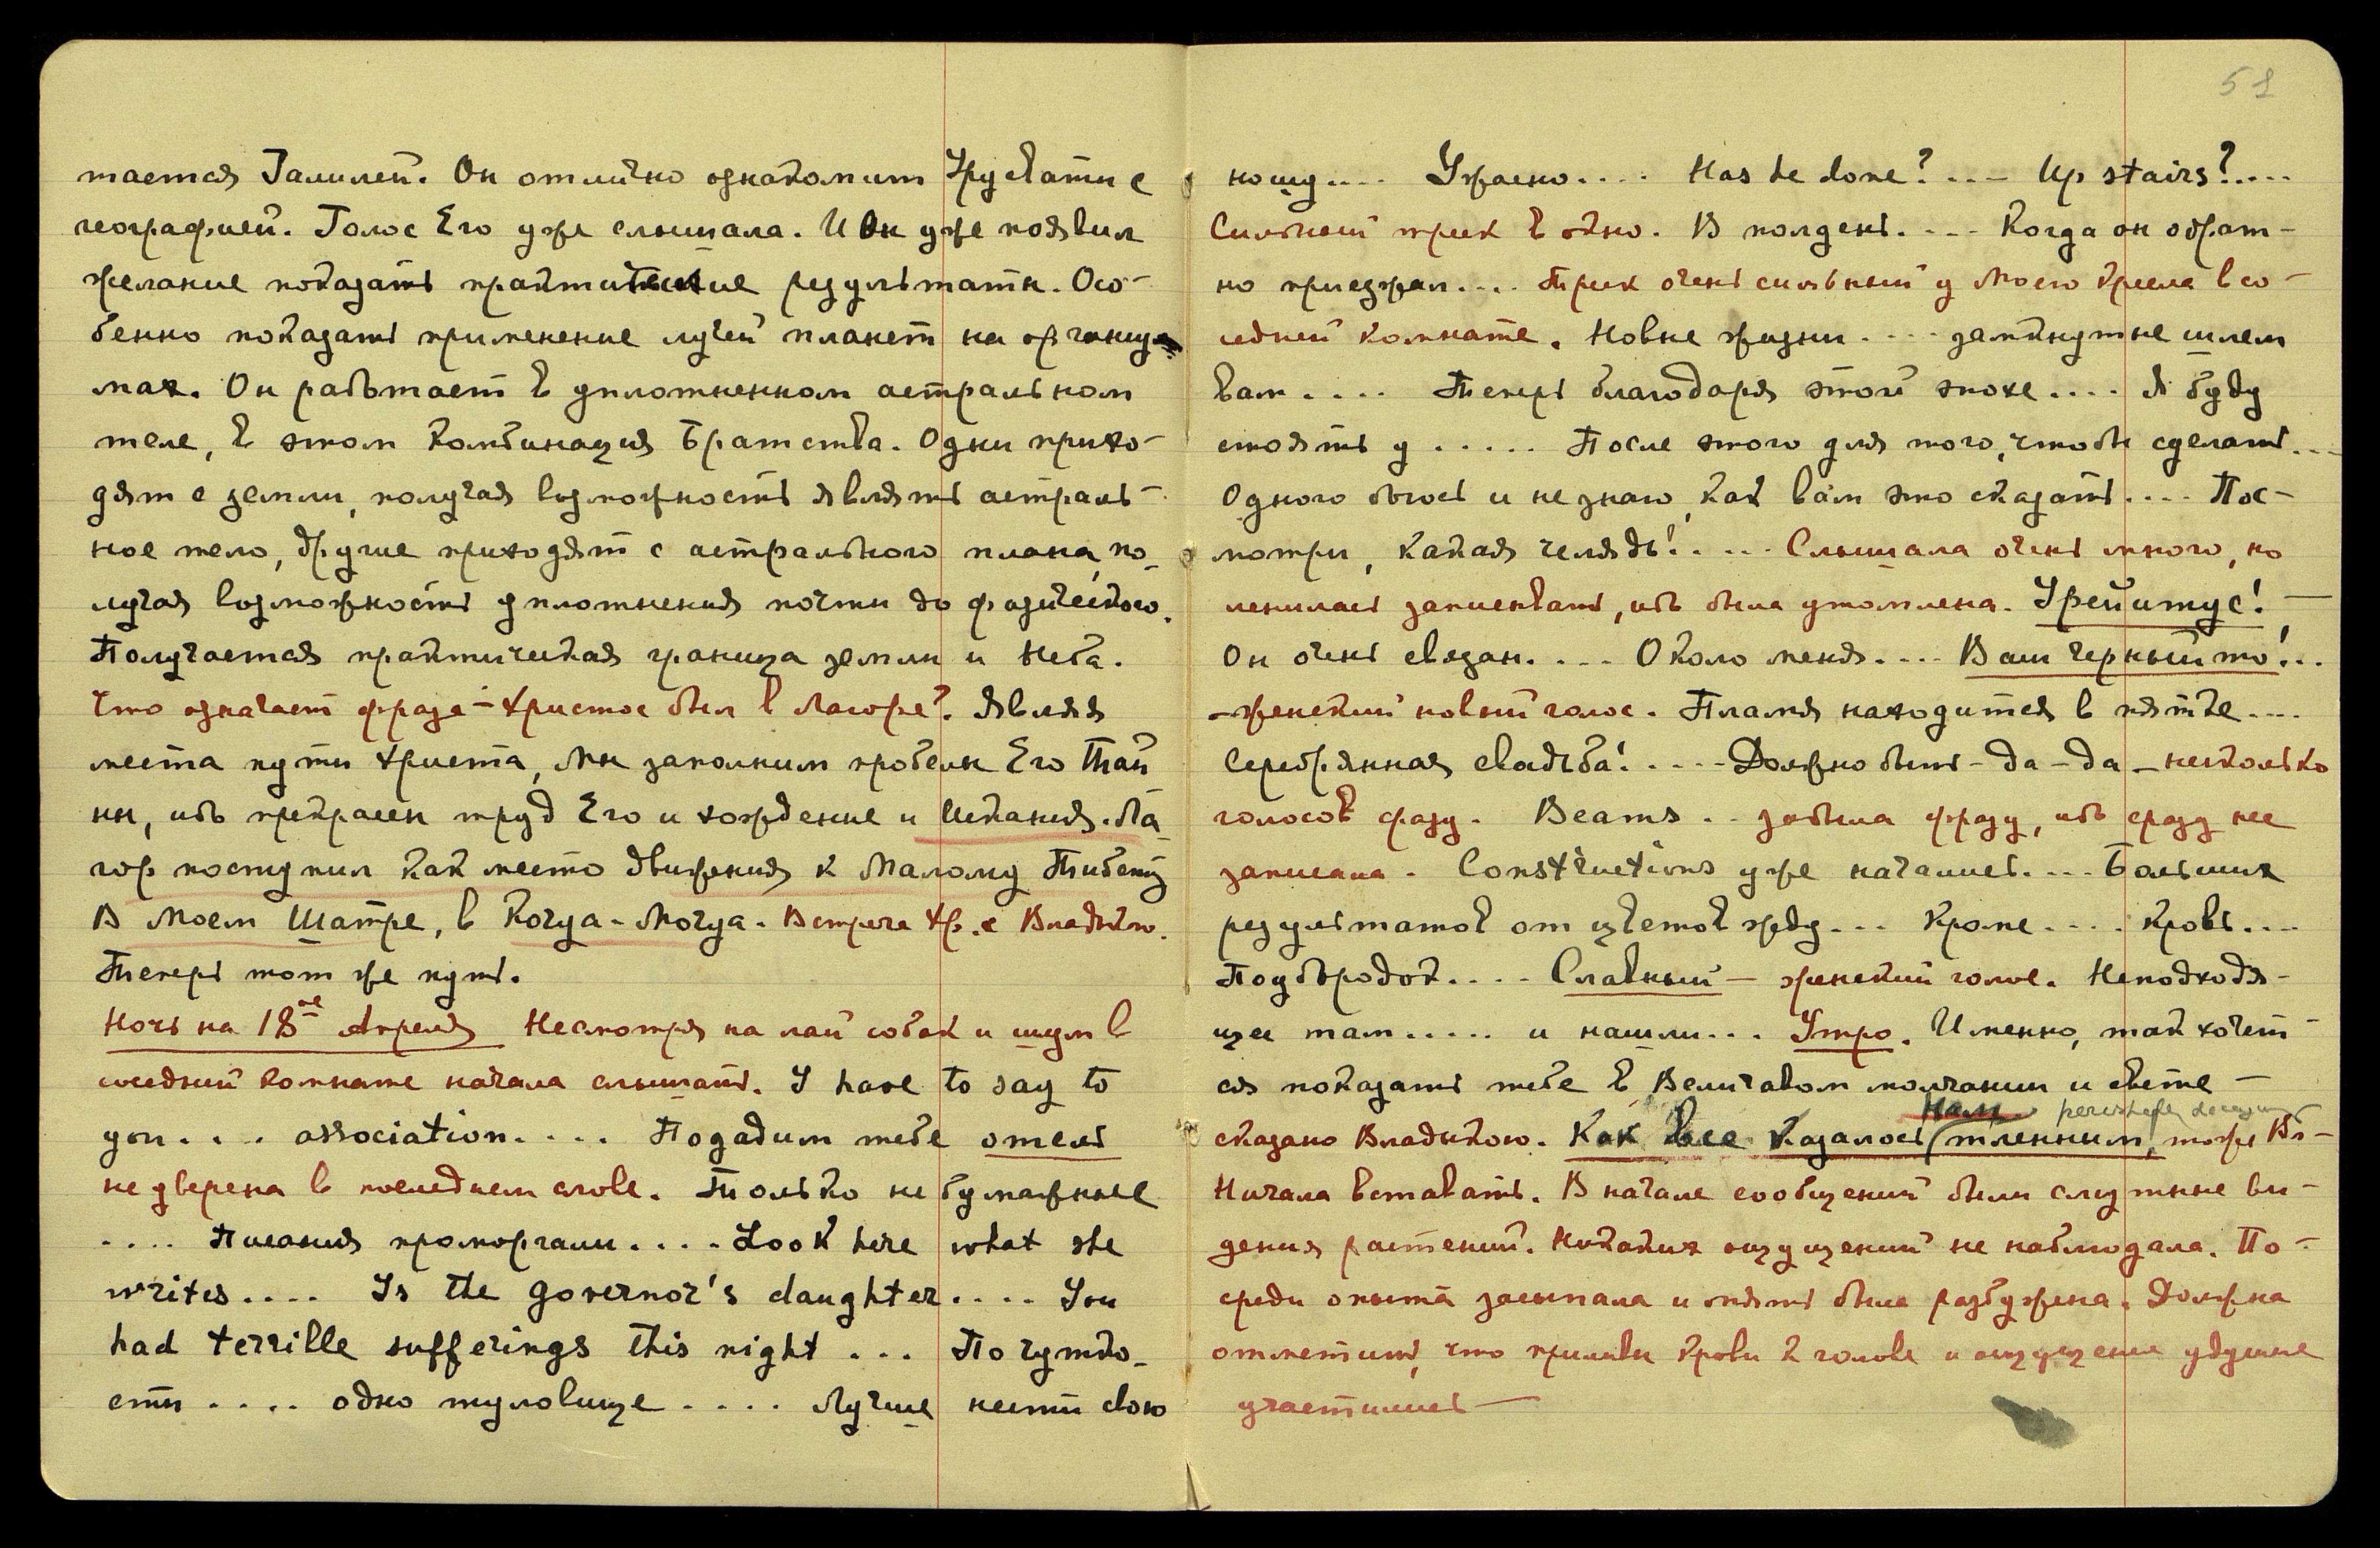 тается Галилей. Он отлично ознакомит Урусвати с
географией. Голос Его уже слышала. И Он уже появил
желание показать практические результаты. Осо-
бенно показать применение лучей планет на организ-
мах. Он работает в уплотненном астральном
теле, в этом комбинация Братства. Одни прихо-
дят с земли, получая возможность являть астраль-
ное тело, другие приходят с астрального плана, по-
лучая возможность уплотнения почти до физического.
Получается практическая граница земли и Неба.
Что означает фраза – Христос был в Лагоре? Являя
места пути Христа, Мы заполним пробелы Его Тай
ны, ибо прекрасен труд Его и хождение и Искания. Ла-
гор поступил как место движения к Малому Тибету
В Моем Шатре, в Когуа-Могуа. Встреча Хр. с Владыкою.
Теперь тот же путь.
Ночь на 18ое Апреля Несмотря на лай собак и шум в
соседней комнате начала слышать. I have to say to
you.... association.... Подадим тебе отель
не уверена в последнем слове. Только не бумажные
.... Писания проморгали.... Look here what she
writes.... Is the governor's daughter.... You
had terrible sufferings this night ... По чутко-
сти .... одно туловище .... Лучше нести свою
51
ношу.... Ужасно.... Has he done?.... Up stairs?....
Сильный трик в окно. В полдень.... Когда он обрат-
но приезжал.... Трик очень сильный у моего кресла в со-
седней комнате. Новые жизни.... замкнутые шлем
вам.... Теперь благодаря этой эпохе.... Я буду
стоять у ..... После этого для того, чтобы сделать...
Одного боюсь и не знаю, как вам это сказать.... Пос-
мотри, какая челядь!.... Слышала очень много, но
ленилась записывать, ибо была утомлена. Урейитус! –
Он очень связан.... Около меня.... Ваш черный то!...
– женский новый голос. Пламя находится в пятке....
Серебрянная свадьба!.....Должно быть – да – да – несколько
голосов сразу. Beams .. забыла фразу, ибо сразу не
записала. Constructions уже начались.... Больших
результатов от цветов жду... Кроме.... Кровь....
Подбородок.... Славный – женский голос. Неподходя-
щее там..... и нашли... Утро. Именно, так хочет-
ся показать тебе в Величавом молчании и свете –
Нам
сказано Владыкою. Как все казалось тленным, тоже Вл–
Начала вставать. В начале сообщений были смутные ви-
дения растений. Никаких ощущений не наблюдала. По-
среди опыта засыпала и опять была разбужена. Должна
отметить, что приливы крови к голове и ощущение удушие
участились –